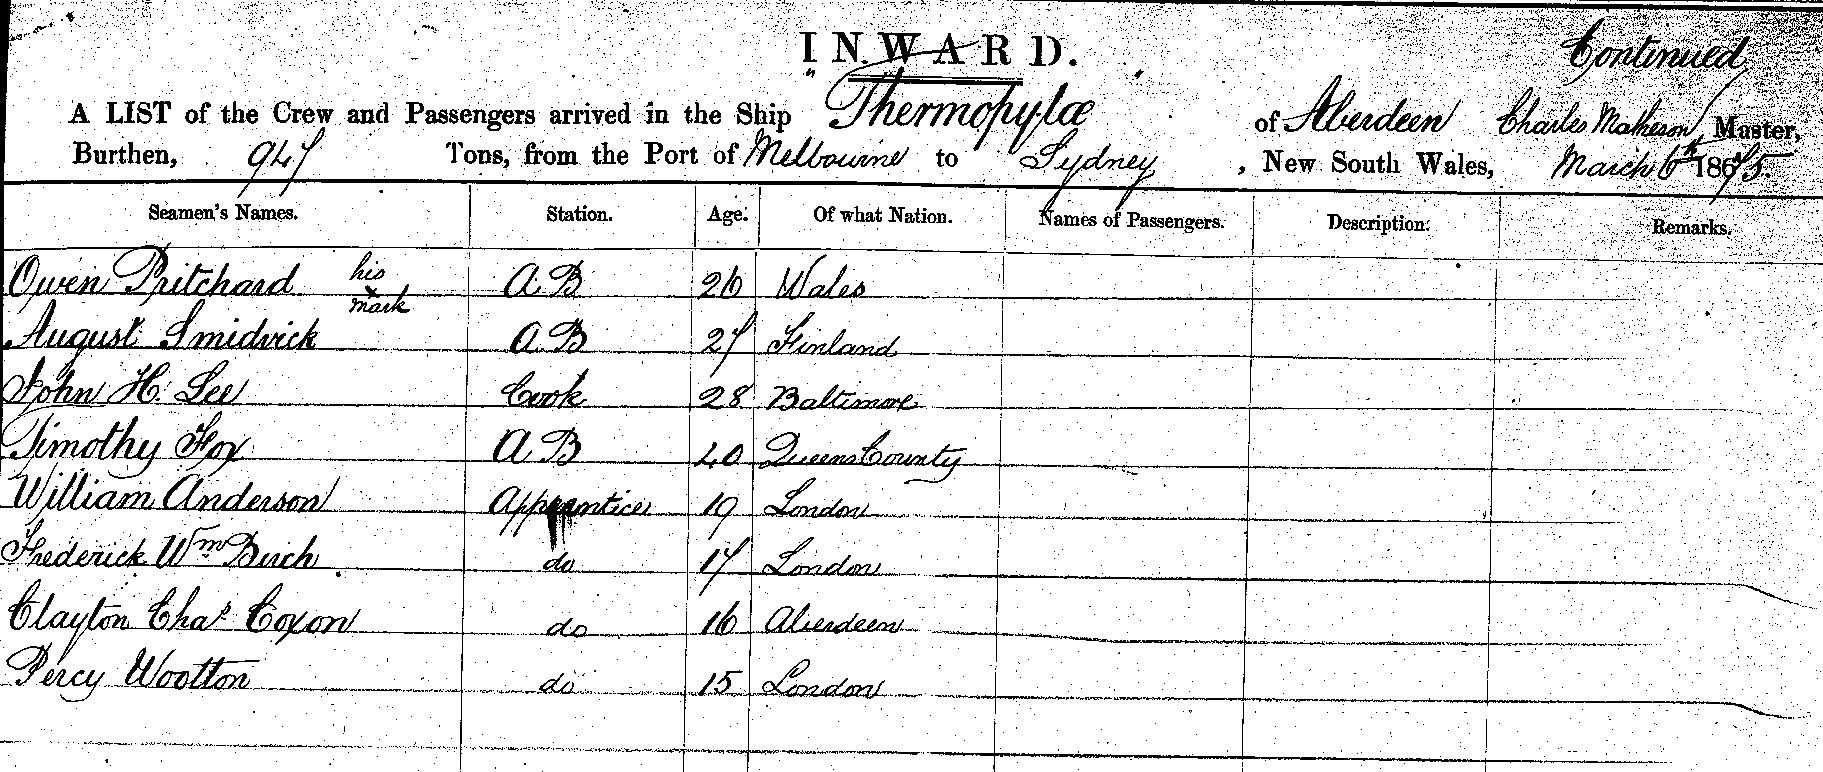 INWARD.
Continued
A LIST of the Crew and Passengers arrived in the Ship Thermopylæ of Aberdeen Charles Matheson, Master,
Burthen, 947 Tons, from the Port of Melbourne to Sydney, New South Wales, March 6th 1875.
Seamen's Names. Station. Age. Of what Nation. Names of Passengers. Description. Remarks.
Owen Pritchard his x mark A B 26 Wales
August Smidvick A B 27 Finland
John H. Lee Cook 28 Baltimore
Timothy Fox A B 40 Queens County
William Anderson Apprentice 19 London
Frederick Wm Birch do 17 London
Clayton Chas Coxon do 16 Aberdeen
Percy Wootton do 15 London